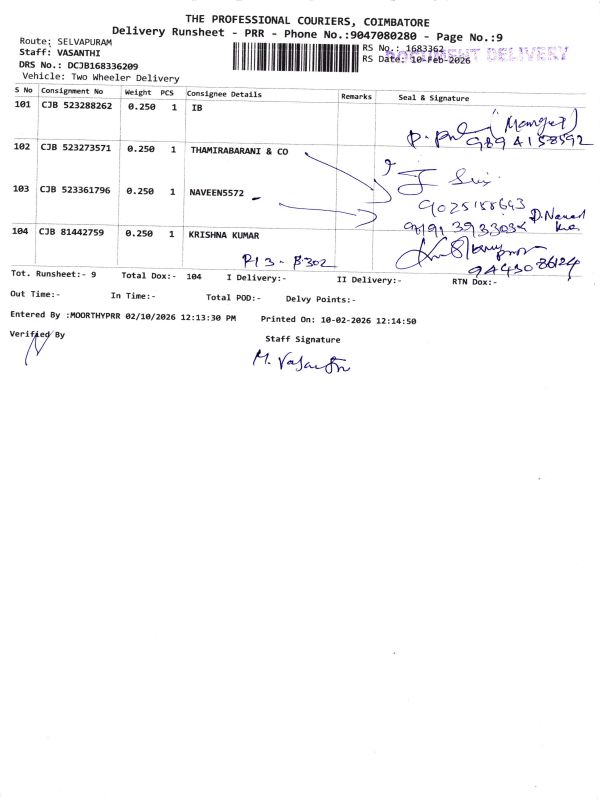 THE PROFESSIONAL COURIERS, COIMBATORE
Delivery Runsheet - PRR - Phone No.:9047080280 - Page No.:9
Route: SELVAPURAM
RS No.: 1683362
Staff: VASANTHI
RS Date: 10-Feb-2026
DOCUMENT DELIVERY
DRS No.: DCJB168336209
Vehicle: Two Wheeler Delivery
S No Consignment No Weight PCS Consignee Details Remarks Seal & Signature
101 CJB 523288262 0.250 1 IB
9894158592
102 CJB 523273571 0.250 1 THAMIRABARANI & CO
103 CJB 523361796 0.250 1 NAVEEN5572
104 CJB 81442759 0.250 1 KRISHNA KUMAR
P13 - B302
Tot. Runsheet:- 9 Total Dox:- 104 I Delivery:- II Delivery:- RTN Dox:-
Out Time:- In Time:- Total POD:- Delvy Points:-
Entered By :MOORTHYPRR 02/10/2026 12:13:30 PM Printed On: 10-02-2026 12:14:50
Verified By
Staff Signature
M. Vasanthi